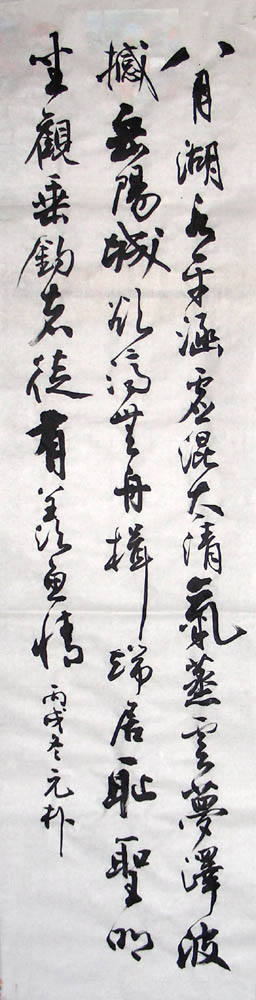 八月湖水平涵虛混大清氣蒸雲夢澤波
撼岳陽城欲濟無舟楫端居耻聖明
坐觀垂釣者徒有羨魚情
丙戌冬元朴